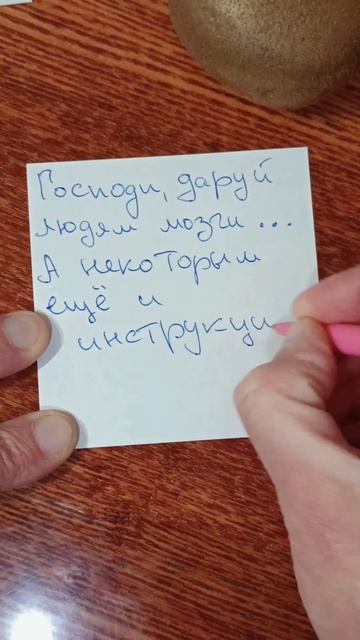 Господи, даруй
людям мозги ...
А некоторым
ещё и
инструкци